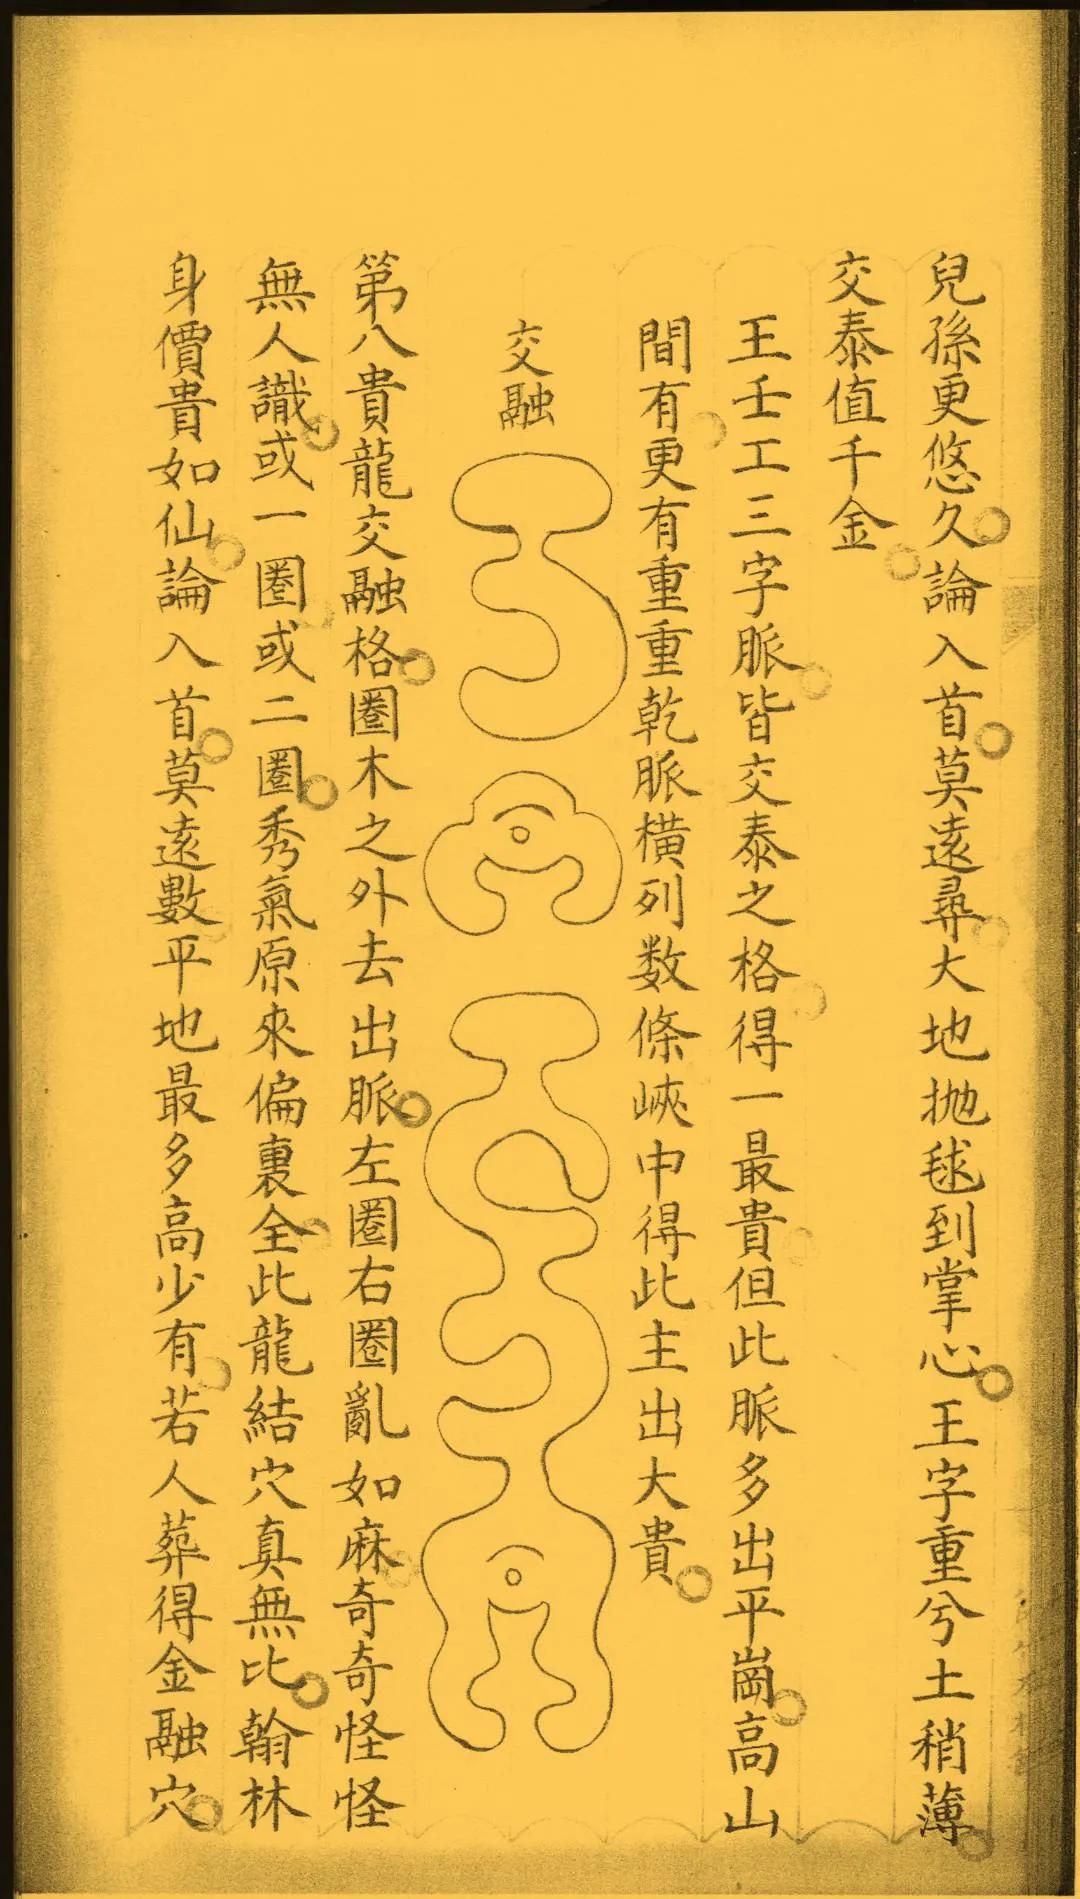 兒孫更悠久論入首莫遠尋大地抛毬到掌心王字重兮土稍薄
交泰值千金
王壬工三字脈皆交泰之格得一最貴但此脈多出平崗高山
間有更有重重乾脈橫列数條峽中得此主出大貴
交融
第八貴龍交融格圈木之外去出脈左圈右圈亂如麻奇奇怪怪
無人識或一圈或二圈秀氣原來偏裏全此龍結穴真無比翰林
身價貴如仙論入首莫遠數平地最多高少有若人葬得金融穴